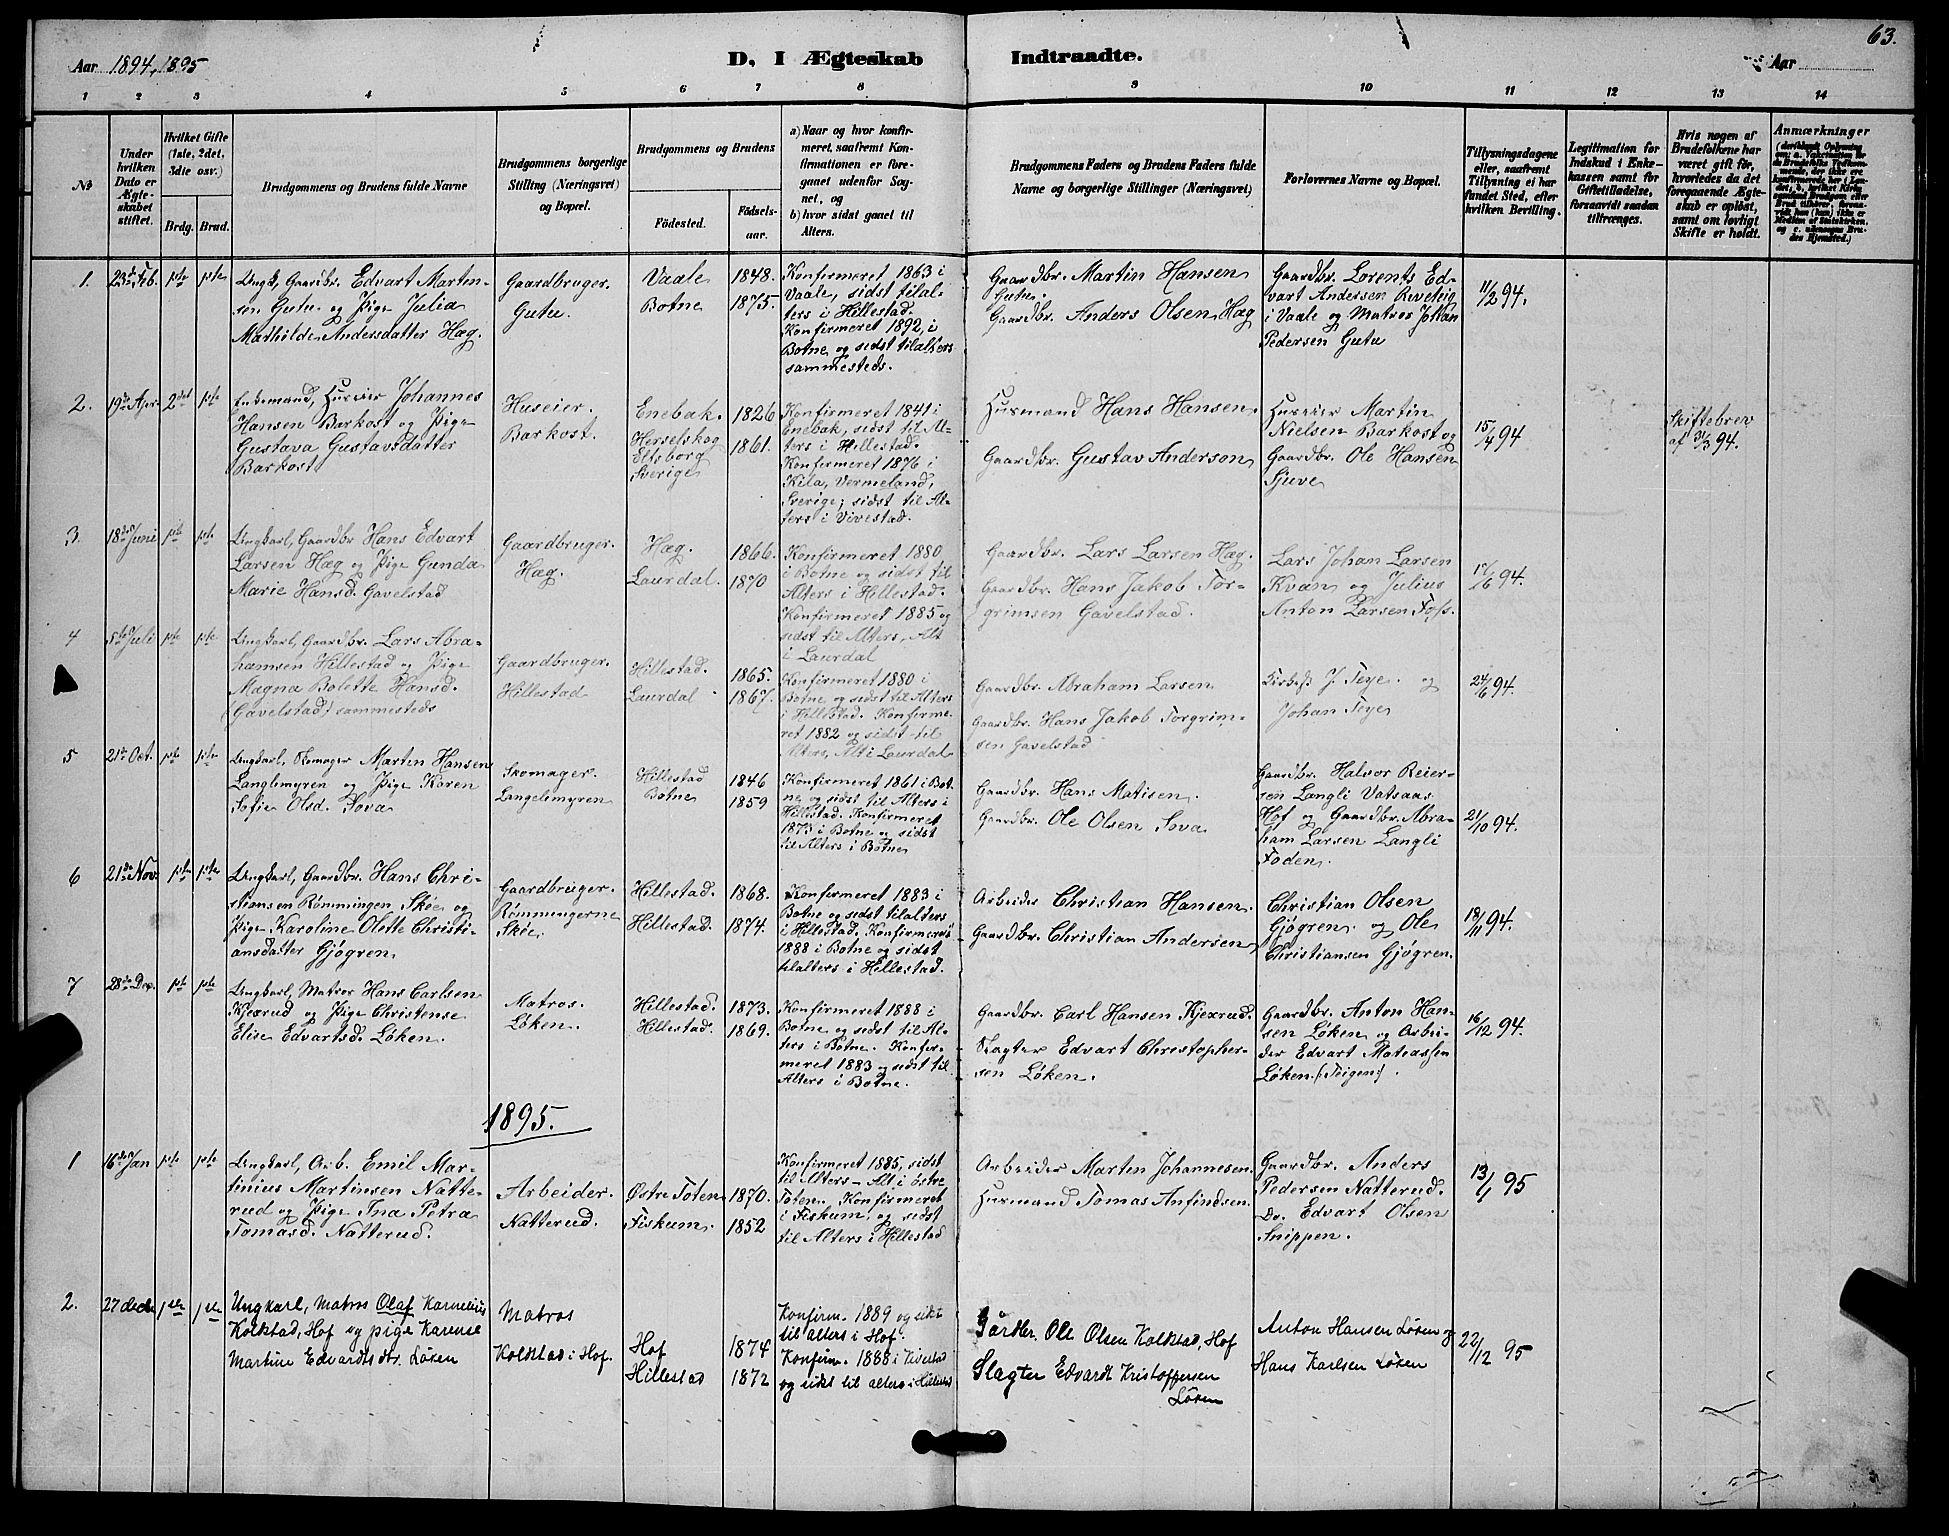 63.
Aar 1894, 1895
D. I Ægteskab Indtraadte.
Aar
1 2 3 4 5 6 7 8 9 10 11 12 13 14
No
Under hvilken Dato er Ægteskabet stiftet.
Hvilket Gifte (1ste, 2det, 3die osv.)
Brdg. Brud.
Brudgommens og Brudens fulde Navne
Brudgommens borgerlige Stilling (Næringsvei) og Bopæl.
Brudgommens og Brudens
Födested.
Födselsaar.
a) Naar og hvor konfirmeret, saafremt Konfirmationen er foregaaet udenfor Sognet, og
b) hvor sidst gaaet til Alters.
Brudgommens Faders og Brudens Faders fulde Navne og borgerlige Stillinger (Næringsvei)
Forlovernes Navne og Bopæl.
Tillysningsdagene eller, saafremt Tillysning ei har fundet Sted, efter hvilken Bevilling.
Legitimation for Indskud i Enkekassen samt for Giftetilladelse, forsaavidt saadan tiltrænges.
Hvis nogen af Brudefolkene har været gift för, hvorledes da det foregaaende Ægteskab er oplöst, samt om lovligt Skifte er holdt.
Anmærkninger
1. 23de Feb. 1ste 1ste
Ungk, Gaardbr. Edvart Martensen Gutu og Pige Julia
Marhilde Andersdatter Hæg.
Gaardbruger.
Gutu.
Vaale 1848.
Botne 1875.
Konfirmeret 1863 i
Vaale, sidst tilalters i Hillestad.
Konfirmeret 1892, i
Botne, og sidst tilalters
sammesteds.
Gaardbr. Martin Hansen
Gutu.
Gaardbr. Anders Olsen Hæg
Gaardbr. Lorents Edvart Andersen Reveteig
i Vaale og Matros Johan
Pedersen Gutu
11/2 94.
2. 19de Apr. 2det 1ste
Enkemand, Huseier Johannes
Hansen Barkost og Pige
Gustava Gustavsdatter
Barkost
Huseier.
Barkost.
Enebak. 1826
Herselskog
Eltsborg 1861.
Sverige
Konfirmeret 1841 i
Enebak, sidst til Alters i Hillestad.
Konfirmeret 1876 i
Kila, Vermeland,
Sverige; sidst til Alters i Vivestad.
Husmand Hans Hansen.
Gaardbr. Gustav Anderson
Huseier Martin
Nielsen Barkost og
Gaardbr. Ole Hansen
Sjuve
15/4 94
Skiftebrev
af 31/3 94.
3. 18de Juni 1ste 1ste
Ungkarl, Gaardbr Hans Edvart
Larsen Hæg og Pige Gunda
Marie Hansd. Gavelstad
Gaardbruger.
Hæg.
Hæg. 1866.
Laurdal. 1870
Konfirmeret 1880
i Botne og sidst til
Alters i Hillestad.
Konfirmeret 1885 og
sidst til Alters, Alt
i Laurdal
Gaardbr. Lars Larsen Hæg.
Gaardbr. Hans Jakob Torgrimsen Gavelstad.
Lars Johan Larsen
Kvan og Julius
Anton Larsen Foss.
17/6 94.
4 5te Juli 1ste 1ste
Ungkarl, Gaardbr. Lars Abrahamsen Hillestad og Pige
Magna Bolette Hansd.
(Gavelstad) sammesteds
Gaardbruger.
Hillestad
Hillestad. 1865.
Laurdal 1867.
Konfirmeret 1880 i
Botne, og sidst til Alters
i Hillestad. Konfirmeret 1882 og sidst til
Alters, Alt i Laurdal
Gaardbr. Abraham Larsen
Gaardbr. Hans Jakob Torgrimsen Gavelstad
Kirkess J. Teye. og
Johan Teye
24/6 94.
5 21de Oct. 1ste 1ste
Ungkarl, Skomager Martin Hansen
Langlemyren og Pige Karen
Sofie Olsd. Sova
Skomager.
Langelemyren
Hillestad 1846
Botne 1859
Konfirmeret 1861 i Botne og sidst til Alters i
Hillestad. Konfirmeret
1873 i Botne og sidst
til Alters i Botne
Gaardbr. Hans Matisen.
Gaardbr. Ole Olsen Sova
Gaardbr. Halvor Reiersen Langli Vatsaas
Hof og Gaardbr. Abraham Larsen Langli
Foden.
21/10 94.
6 21de Nov. 1ste 1ste
Ungkarl, Gaardbr. Hans Christiansen Rømmingen Skøie og
Pige Karoline Olette Christiansdatter Gjøgren.
Gaardbruger.
Rømmingerne
Skøie.
Hillestad. 1868.
Hillestad. 1874.
Konfirmeret 1883 i
Botne og sidst tilalters
i Hillestad. Konfirmeret
1888 i Botne og sidst
tilalters i Hillestad.
Arbeider Christian Hansen.
Gaardbr. Christian Andersen
Christian Olsen
Gjøgren. og Ole
Christiansen Gjøgren.
18/11 94.
7 28de Dec. 1ste 1ste
Ungkarl, Matros Hans Carlsen
Kjexrud og Pige Christense
Elise Edvartsd. Løken.
Matros.
Løken.
Hillestad. 1873.
Hillestad. 1869.
Konfirmeret 1888 i
Botne, og sidst til Alters i Botne. Konfirmeret 1883 og sidst til
Alters i Botne.
Gaardbr. Carl Hansen Kjexrud.
Slagter Edvart Christophersen Løken.
Gaardbr. Anton Hansen Løken og Arbeider Edvart Matiassen
Løken (Teigen).
16/12 94.
1895.
1 16de Jan 1ste 1ste
Ungkarl, Arb. Emil Martinius Martinsen Natterud og Pige Ina Petra
Tomasd. Natterud.
Arbeider.
Natterud.
Østre Toten 1870.
Fiskum. 1852
Konfirmeret 1885, sidst
til Alters – Alt i østre
Toten. Konfirmeret
i Fiskum, og sidst
til Alters i Hillestad
Arbeider Marten Johannesen.
Husmand Tomas Anfindsen.
Gaardbr. Anders
Pedersen Natterud.
Do. Edvart Olsen
Snippen.
13/1 95
2. 27 decbr 1ste 1ste
Ungkarl, Matros Olaf Karnelius
Kolkstad, Hof og pige Karense
Martine Edvardtsdtr. Løken
Matros
Kolkstad i Hof.
Hof 1874
Hillestad 1872
Konfirm. 1889 og sidst
til alters i Hof.
Konfirm. 1888 i Vivestad
og sidst til alters i Hillestad
Gårdbr. Ole Olsen Kolkstad, Hof
Slagter Edvardt Kristoffersen
Løken
Anton Hansen Løken og
Hans Karlsen Løken
22/12 95